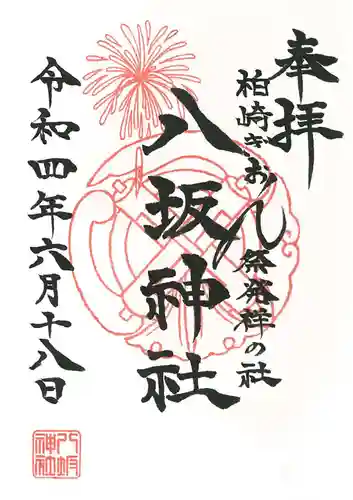 奉拝
柏崎ぎおん祭発祥の社
八坂神社
令和四年六月十八日
八坂
神社